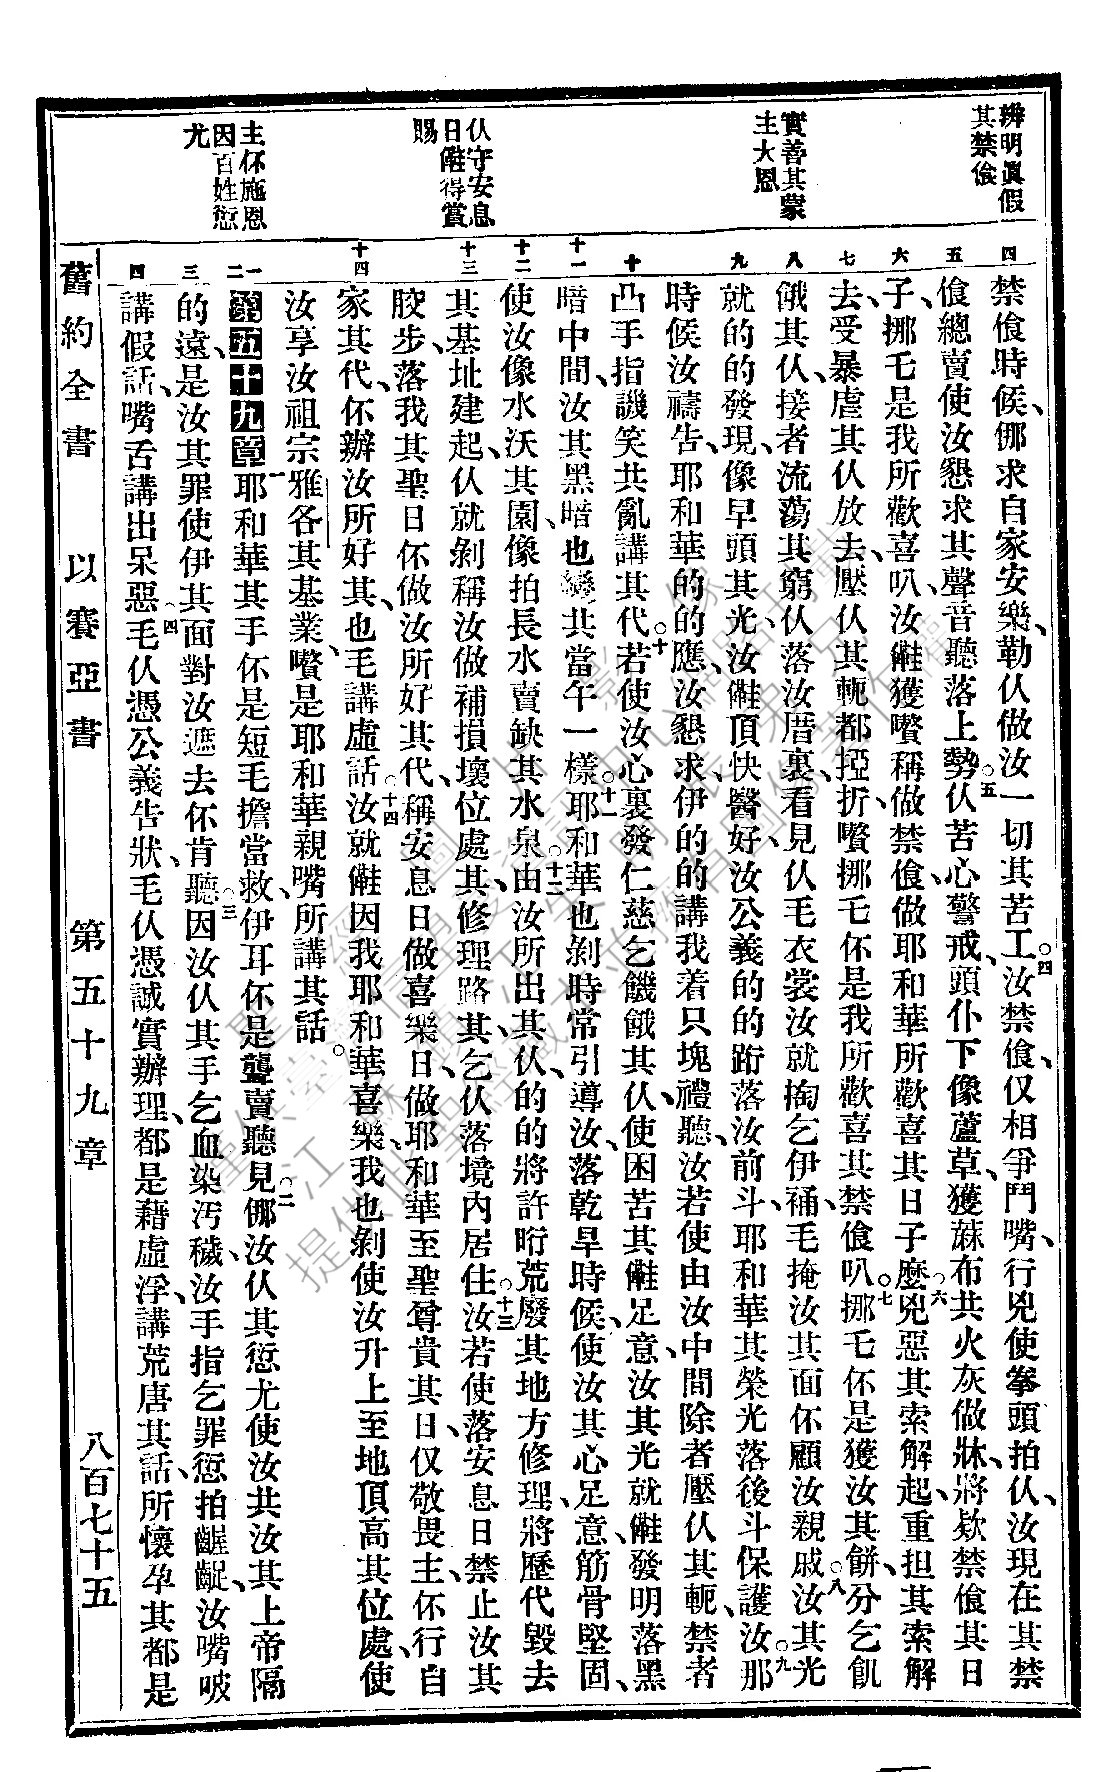 辨明眞假
其禁偷
實善其蒙
主大恩
仈守安息
日𣍐得賞
賜
主伓施恩
因百姓愆
尤
四
五
六
七
八
九
十
十一
十二
十三
十四
一二
三
四
禁飡時候、㑚求自家安樂、勒仈做汝一切其苦工、○四汝禁飡、仅相爭鬥嘴、行兇使拳頭拍仈、汝現在其禁
飡總賣使汝懇求其聲音聽落上勢、○五仈苦心警戒、頭仆下像蘆草、獲蔴布共火灰做牀、將欵禁飡其日
子、挪乇是我所歡喜叭、汝𣍐獲贅稱做禁飡、做耶和華所歡喜其日子麽、○六兇惡其索解起、重担其索解
去、受暴虐其仈放去、壓仈其軛都掗折、贅挪乇伓是我所歡喜其禁飡叭、○七挪乇伓是獲汝其餅分乞飢
餓其仈、接者流蕩其窮仈落汝厝裏、看見仈毛衣裳汝就掏乞伊補、毛掩汝其面伓顧汝親戚、○八汝其光
就的的發現、像早頭其光、汝𣍐頂快醫好、汝公義的的跀落汝前斗、耶和華其榮光落後斗保護汝、○九那
時候汝禱告、耶和華的的應、汝懇求、伊的的講我着只塊禮聽、汝若使由汝中間除者壓仈其軛、禁者
凸手指譏笑共亂講其代、○十若使汝心裏發仁慈乞饑餓其仈、使困苦其𣍐足意、汝其光就𣍐發明落黑
暗中間、汝其黑暗也變共當午一樣、○十一耶和華也剝時常引導汝、落乾旱時候、使汝其心足意、筋骨堅固、
使汝像水沃其園、像拍長水賣缺其水泉、○十二由汝所出其仈的的將許昕荒廢其地方修理、將歷代毀去
其基址建起、仈就剝稱汝做補損壞位處其、修理路其、乞仈落境內居住、○十三汝若使落安息日、禁止汝其
骹步、落我其聖日伓做汝所好其代、稱安息日做喜樂日、做耶和華至聖尊貴其日、仅敬畏主、伓行自
家其代、伓辦汝所好其、也毛講虛話、○十四汝就𣍐因我耶和華喜樂、我也剝使汝升上至地頂高其位處、使
汝享汝祖宗雅各其基業、贅是耶和華親嘴所講其話。
第五十九章 一耶和華其手伓是短毛擔當救、伊耳伓是聾賣聽見、○二㑚汝仈其愆尤使汝共汝其上帝隔
的遠、是汝其罪使伊其面對汝遮去伓肯聽、○三因汝仈其手乞血染汚穢、汝手指乞罪愆拍齷齪、汝嘴唆
講假話、嘴舌講出呆惡、○四毛仈憑公義告狀、毛仈憑誠實辦理、都是藉虛浮、講荒唐其話、所懷孕其都是
舊約全書　以賽亞書　第五十九章　八百七十五